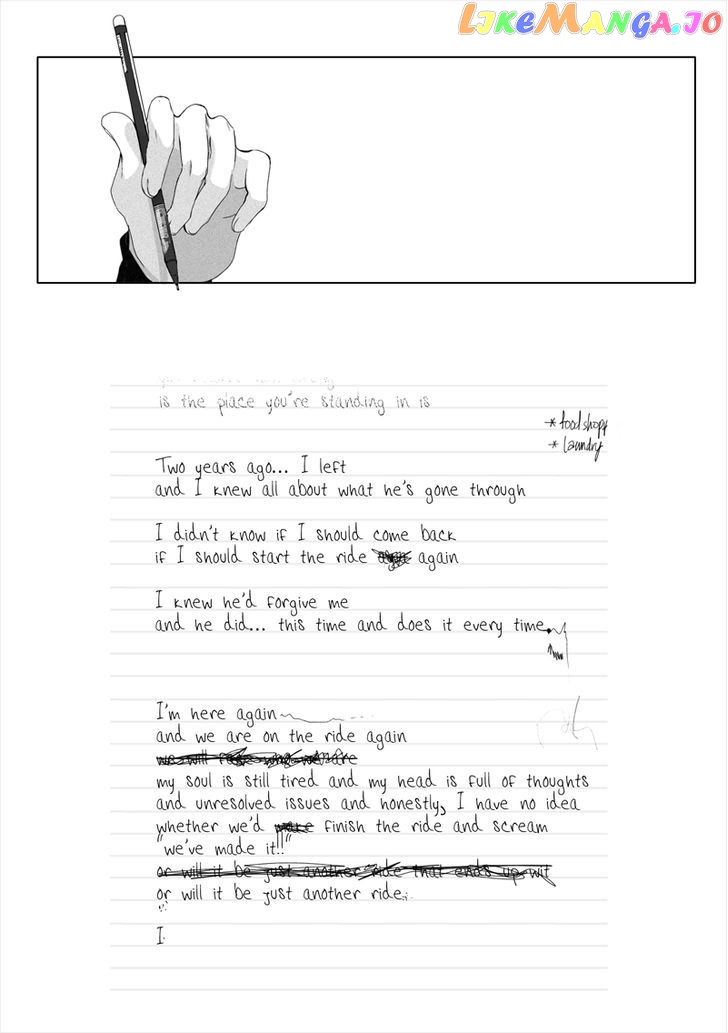 LIKEMANGA.IO
is the place you're standing in is
* food shopp
* laundry
Two years ago... I left
and I knew all about what he's gone through
I didn't know if I should come back
if I should start the ride again
I knew he'd forgive me
and he did... this time and does it every time.
I'm here again
and we are on the ride again
my soul is still tired and my head is full of thoughts
and unresolved issues and honestly, I have no idea
whether we'd finish the ride and scream
"we've made it!!"
or will it be just another ride that ends up wit
or will it be just another ride.
I